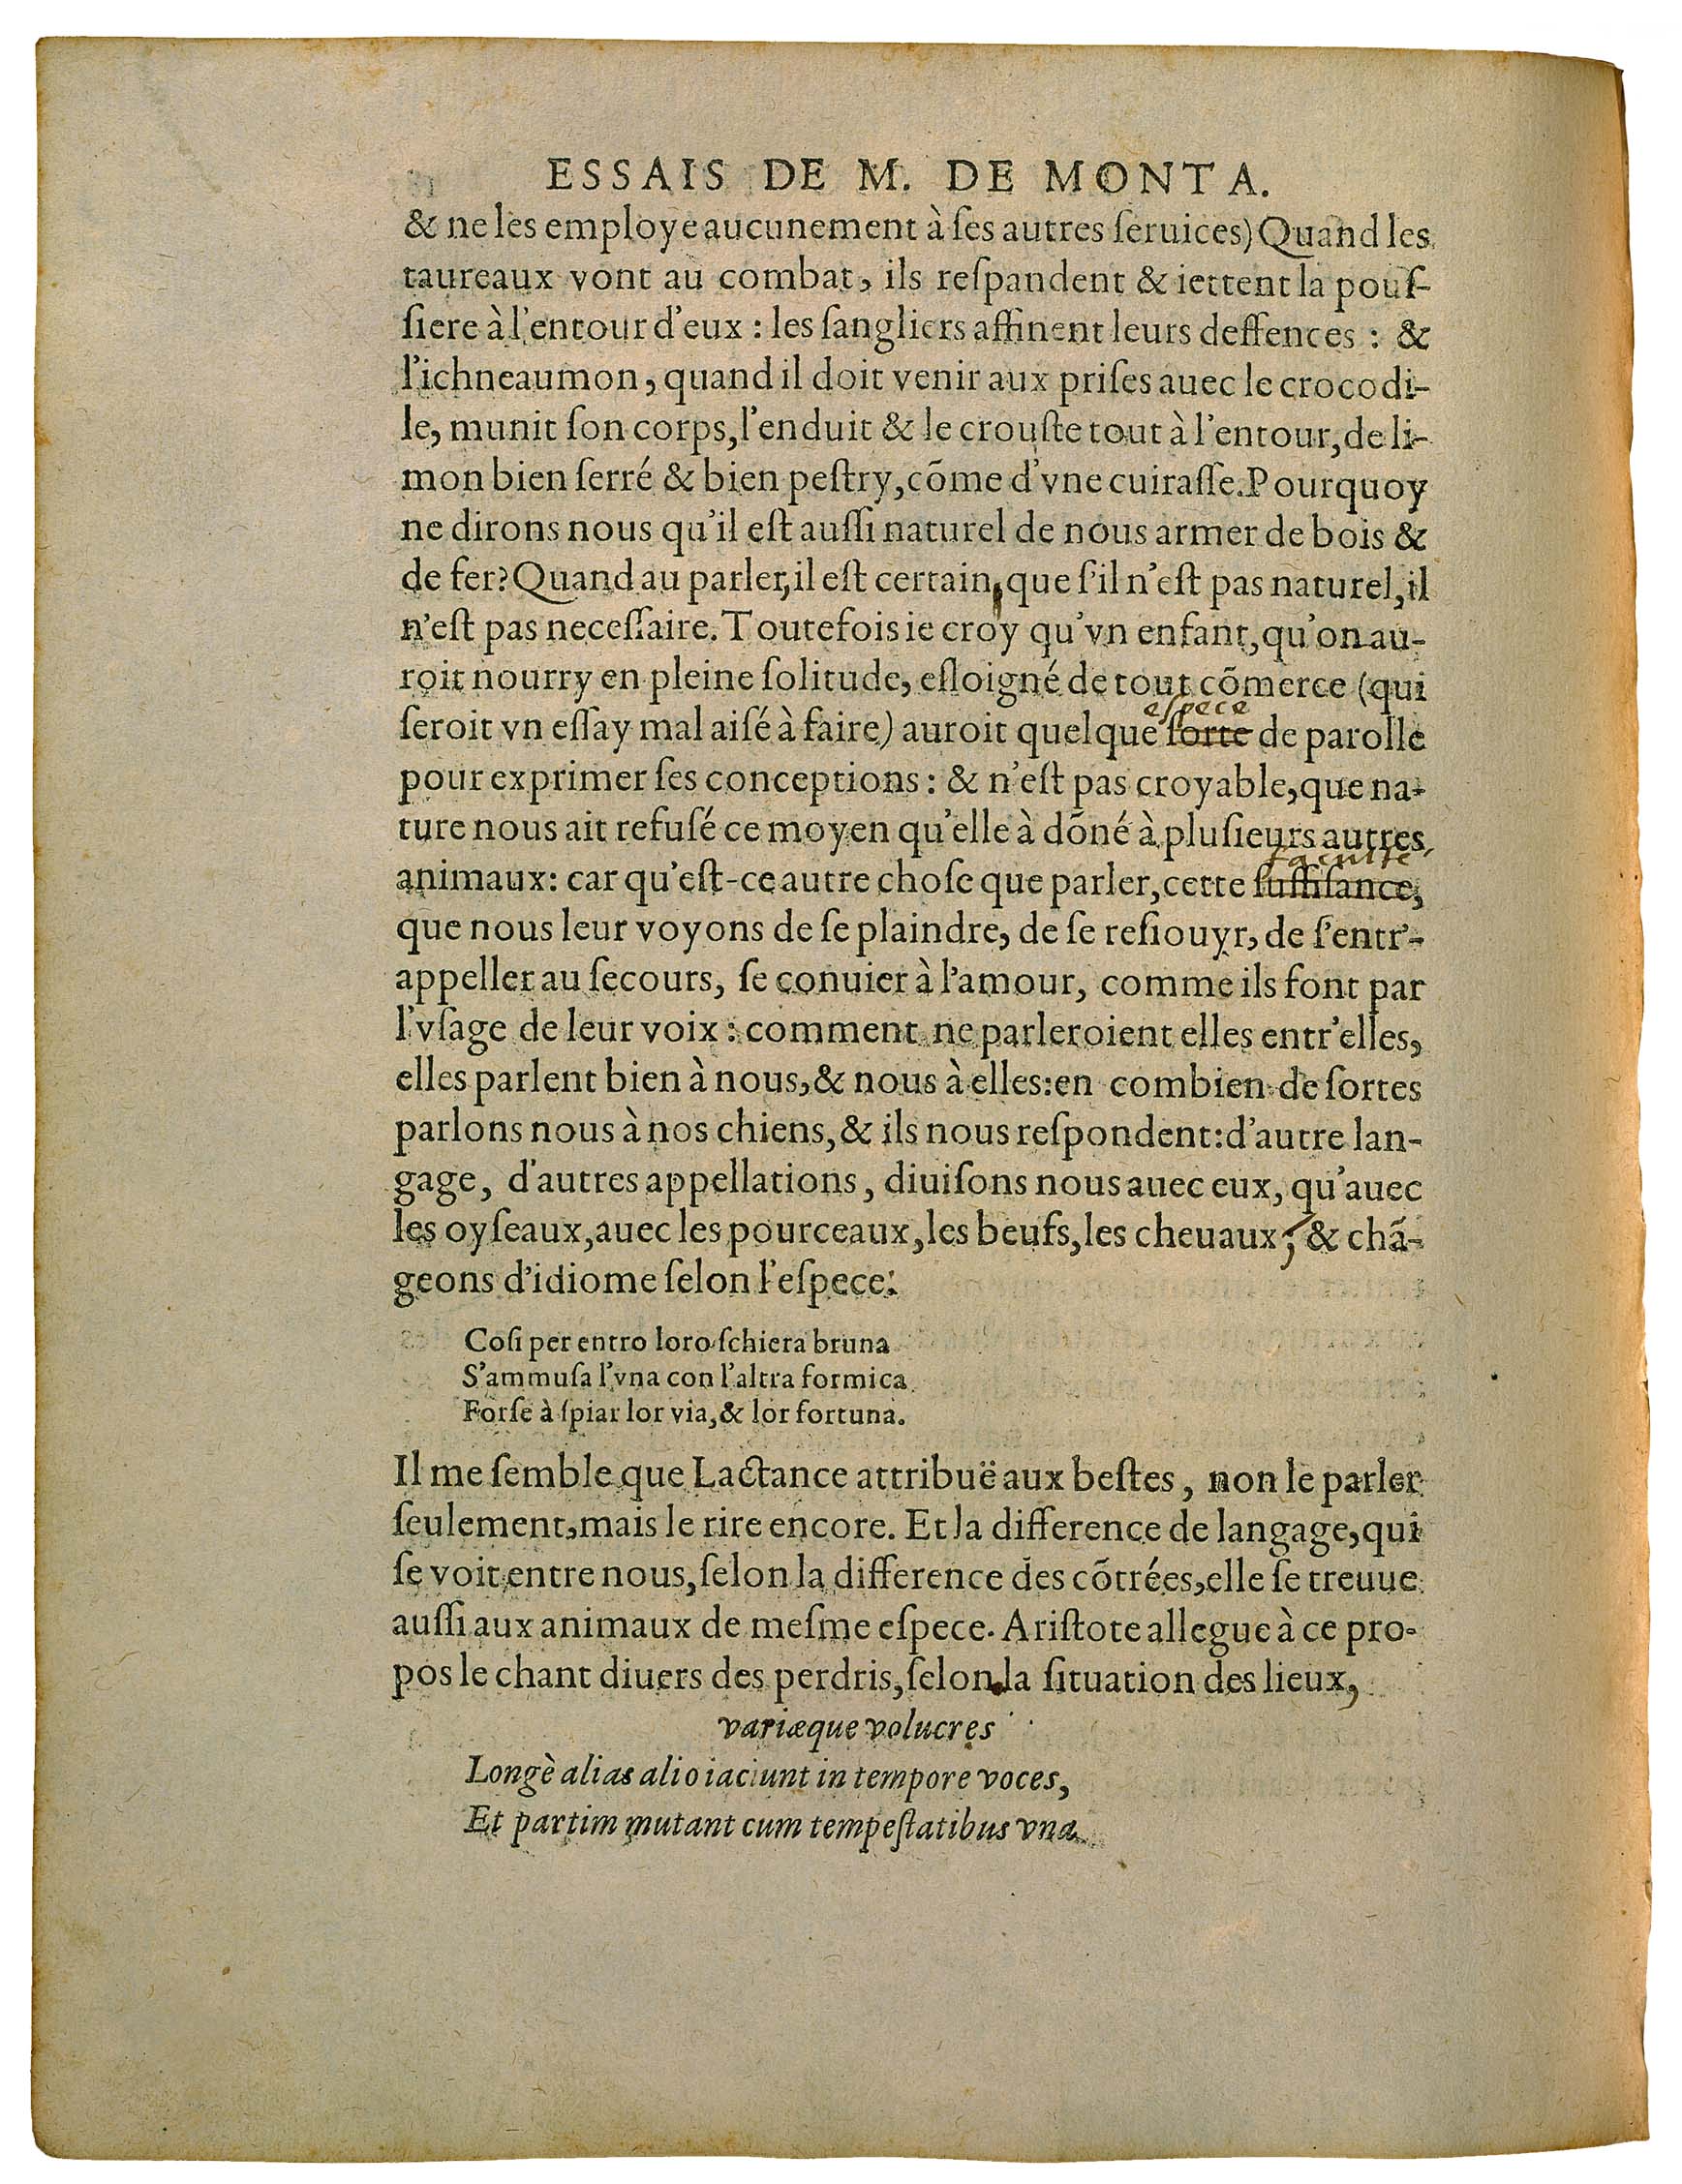 ESSAIS DE M. DE MONTA.
& ne les employe aucunement à ſes autres ſeruices) Quand les
taureaux vont au combat, ils reſpandent & iettent la pouſ-
ſiere à l'entour d'eux : les ſangliers affinent leurs deffences : &
l'ichneaumon, quand il doit venir aux priſes auec le crocodi-
le, munit ſon corps, l'enduit & le crouſte tout à l'entour, de li-
mon bien ſerré & bien peſtry, cõme d'vne cuiraſſe. Pourquoy
ne dirons nous qu'il eſt auſſi naturel de nous armer de bois &
de fer? Quand au parler, il eſt certain, que ſ'il n'eſt pas naturel, il
n'eſt pas neceſſaire. Toutefois ie croy qu'vn enfant, qu'on au-
roit nourry en pleine ſolitude, eſloigné de tout cõmerce (qui
espece
ſeroit vn eſſay mal aiſé à faire) auroit quelque ſorte de parolle
pour exprimer ſes conceptions : & n'eſt pas croyable, que na-
ture nous ait refuſé ce moyen qu'elle à dõné à pluſieurs autres
faculte,
animaux : car qu'eſt-ce autre choſe que parler, cette ſuffiſance,
que nous leur voyons de ſe plaindre, de ſe reſiouyr, de ſ'entr'-
appeller au ſecours, ſe conuier à l'amour, comme ils font par
l'vſage de leur voix : comment ne parleroient elles entr'elles,
elles parlent bien à nous, & nous à elles : en combien de ſortes
parlons nous à nos chiens, & ils nous reſpondent : d'autre lan-
gage, d'autres appellations, diuiſons nous auec eux, qu'auec
les oyſeaux, auec les pourceaux, les beufs, les cheuaux, & chã-
geons d'idiome ſelon l'eſpece :
Coſi per entro loro ſchiera bruna
S'ammuſa l'vna con l'altra formica
Forſe à ſpiar lor via, & lor fortuna.
Il me ſemble que Lactance attribuë aux beſtes, non le parler
ſeulement, mais le rire encore. Et la difference de langage, qui
ſe voit entre nous, ſelon la difference des cõtrées, elle ſe treuue
auſſi aux animaux de meſme eſpece. Ariſtote allegue à ce pro-
pos le chant diuers des perdris, ſelon la ſituation des lieux,
variæque volucres
Longè alias alio iaciunt in tempore voces,
Et partim mutant cum tempeſtatibus vna